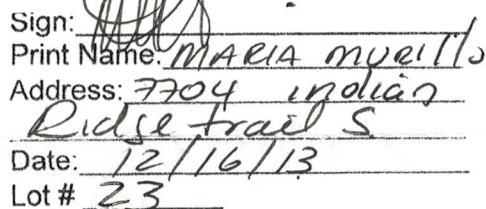 Sign:
Print Name. MARIA murillo
Address: 7704 indian
Ridge trail S
Date: 12/16/13
Lot # 23